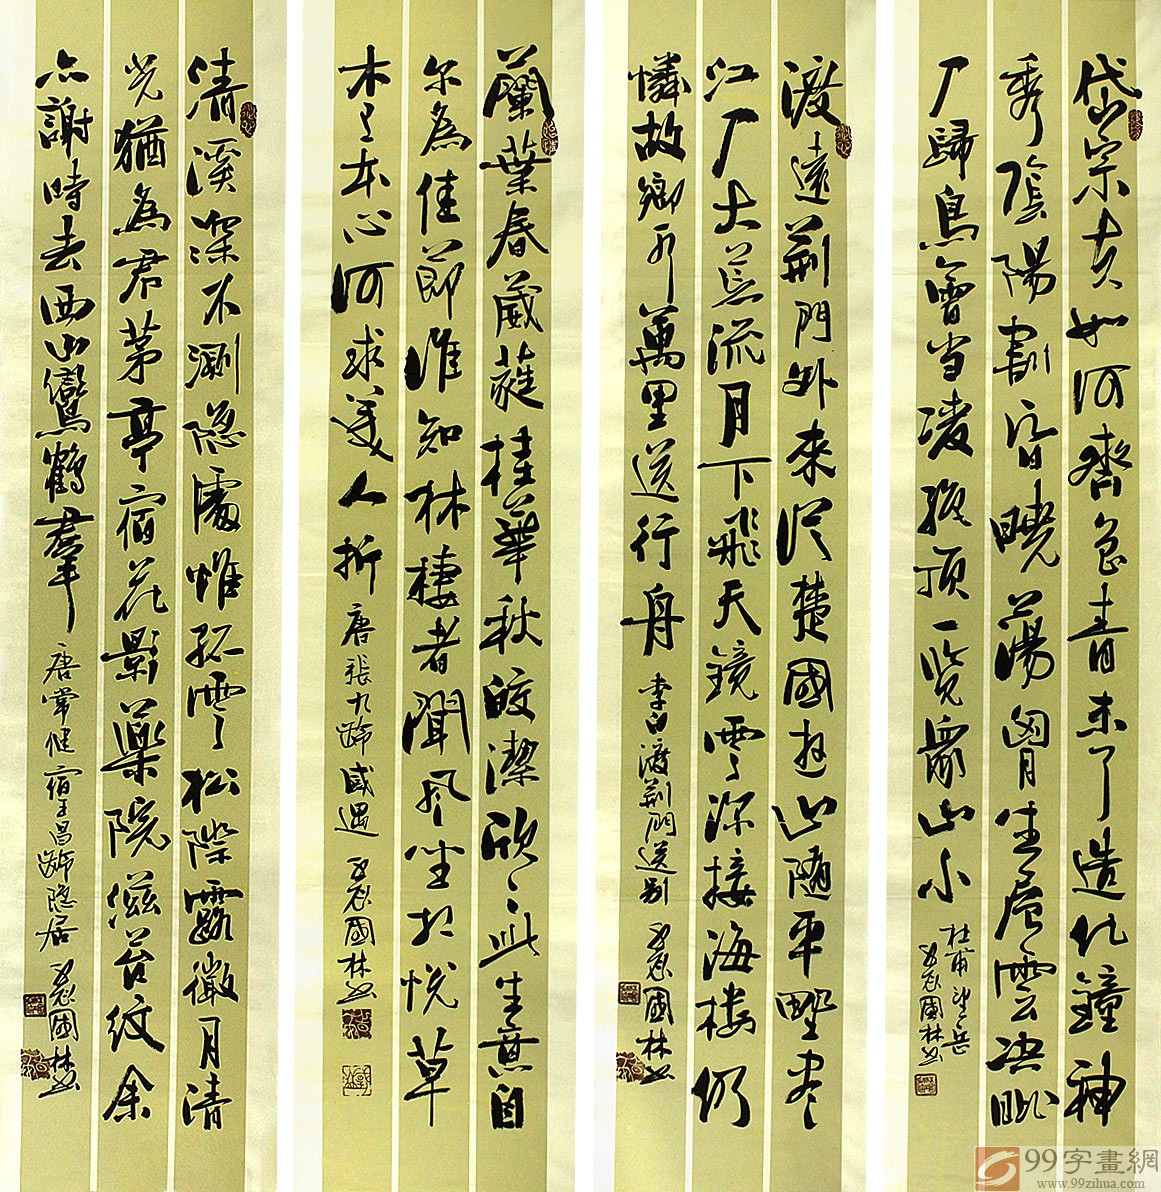 岱宗夫如何齊魯青未了造化鐘神
秀陰陽割昏曉蕩胷生層雲决眦
入歸鳥會當凌絕頂一覽眾山小
杜甫望岳
國林書
渡遠荊門外來從楚國遊山隨平野盡
江入大荒流月下飛天鏡雲深接海樓仍
憐故鄉水萬里送行舟
李白渡荊門送别
國林書
蘭葉春葳蕤桂華秋皎潔欣〻此生意自
尔為佳節谁知林棲者聞風坐相悅草
木有本心何求美人折
唐張九齡感遇
國林書
清溪深不測隐處惟孤雲松際露微月清
光猶為君茅亭宿花影藥院滋苔紋余
亦謝時去西山鸞鶴羣
唐常健宿王昌齡隐居
國林書
99字畫網
www.99zihua.com